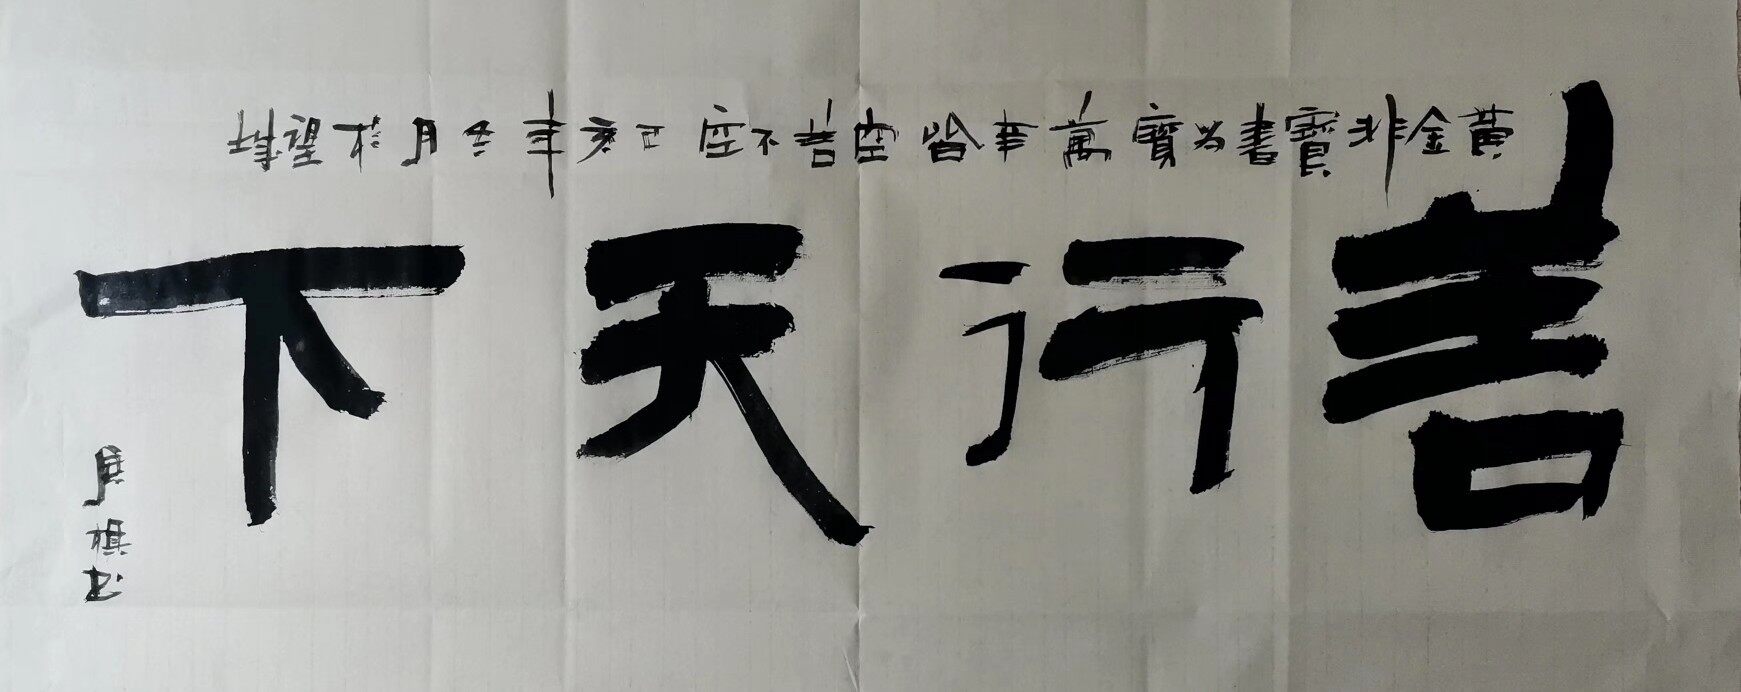 黃金非寶書为寶萬事皆空善不空己亥年冬月於望城
善行天下
棋书